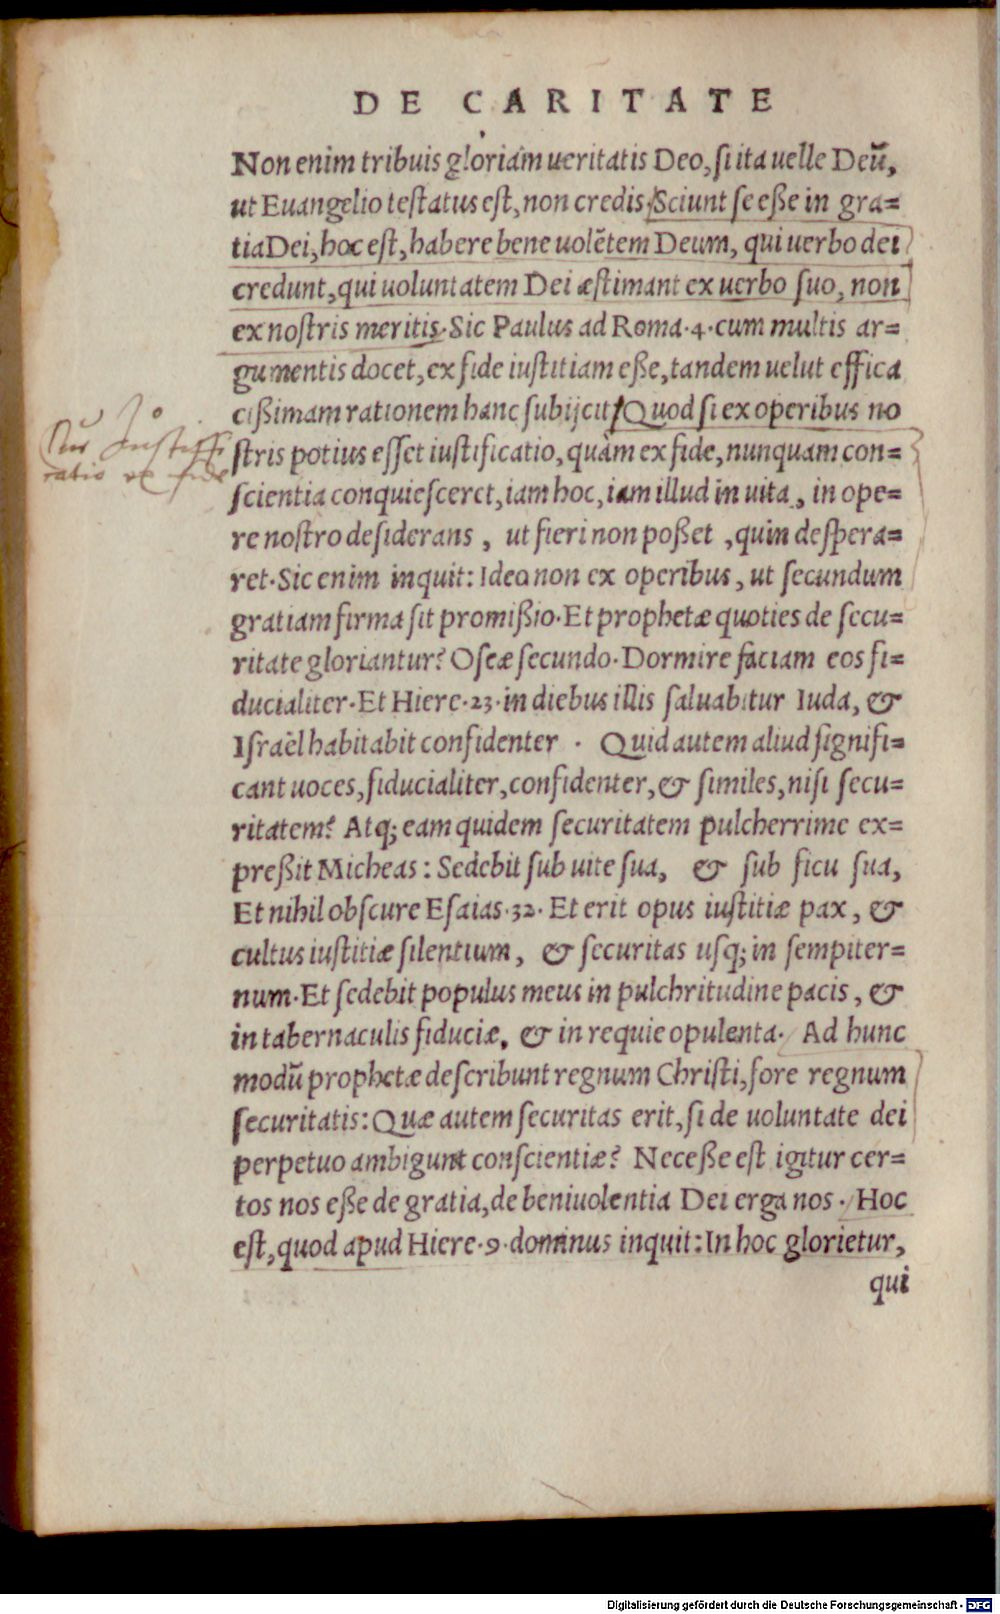 DE CARITATE
Non enim tribuis gloriam ueritatis Deo, si ita uelle Deũ,
ut Euangelio testatus est, non credis. Sciunt se eße in gra=
tia Dei, hoc est, habere bene uolẽtem Deum, qui uerbo dei
credunt, qui uoluntatem Dei æstimant ex uerbo suo, non
ex nostris meritis. Sic Paulus ad Roma. 4. cum multis ar=
gumentis docet, ex fide iustitiam eße, tandem uelut effica
cißimam rationem hanc subijcit, Quod si ex operibus no
stris potius esset iustificatio, quàm ex fide, nunquam con=
scientia conquiesceret, iam hoc, iam illud in uita, in ope=
re nostro desiderans, ut fieri non poßet, quin despera=
ret. Sic enim inquit: Ideo non ex operibus, ut secundum
gratiam firma sit promißio. Et prophetæ quoties de secu=
ritate gloriantur? Oseæ secundo. Dormire faciam eos fi=
ducialiter. Et Hiere. 23. in diebus illis saluabitur Iuda, &
Israël habitabit confidenter. Quid autem aliud signifi=
cant uoces, fiducialiter, confidenter, & similes, nisi secu=
ritatem? Atq; eam quidem securitatem pulcherrime ex=
preßit Micheas: Sedebit sub uite sua, & sub ficu sua,
Et nihil obscure Esaias. 32. Et erit opus iustitiæ pax, &
cultus iustitiæ silentium, & securitas usq; in sempiter=
num. Et sedebit populus meus in pulchritudine pacis, &
in tabernaculis fiduciæ, & in requie opulenta. Ad hunc
modũ prophetæ describunt regnum Christi, fore regnum
securitatis: Quæ autem securitas erit, si de uoluntate dei
perpetuo ambigunt conscientiæ? Neceße est igitur cer=
tos nos eße de gratia, de beniuolentia Dei erga nos. Hoc
est, quod apud Hiere. 9. dominus inquit: In hoc glorietur,
qui
ratio ex fide
Digitalisierung gefördert durch die Deutsche Forschungsgemeinschaft - DFG